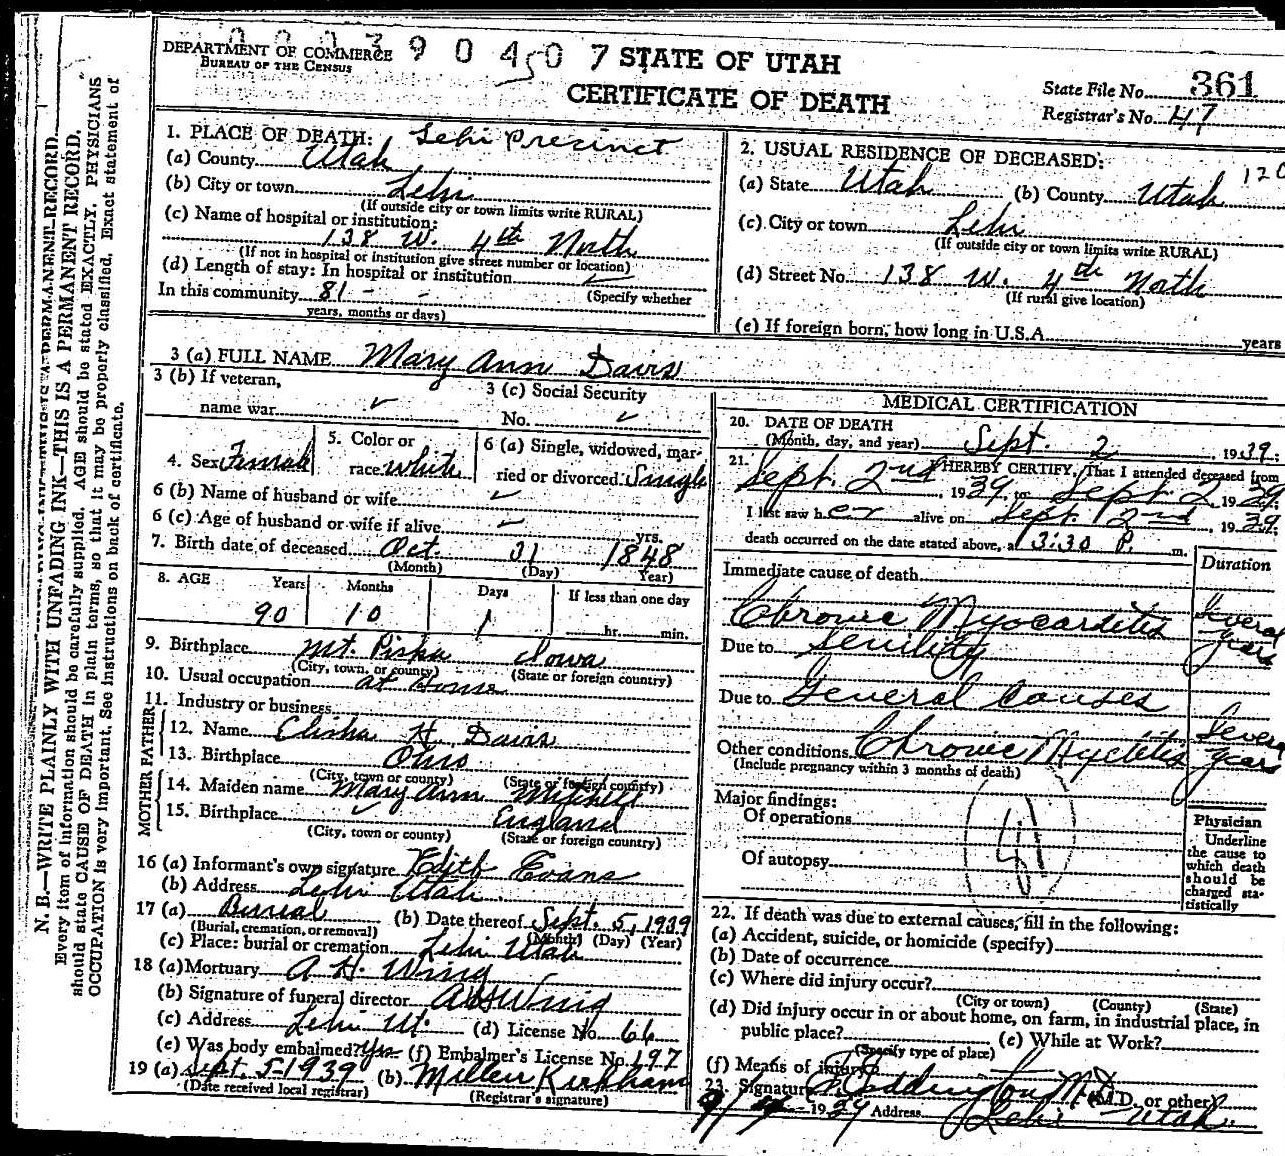 0003904507
DEPARTMENT OF COMMERCE
BUREAU OF THE CENSUS
STATE OF UTAH
CERTIFICATE OF DEATH
State File No. 361
Registrar's No. 47
1. PLACE OF DEATH: Lehi Precinct
(a) County Utah
(b) City or town Lehi
(If outside city or town limits write RURAL)
(c) Name of hospital or institution:
138 W. 4th North
(If not in hospital or institution give street number or location)
(d) Length of stay: In hospital or institution
(Specify whether
In this community 81 - -
years, months or days)
2. USUAL RESIDENCE OF DECEASED: 120
(a) State Utah (b) County Utah
(c) City or town Lehi
(If outside city or town limits write RURAL)
(d) Street No. 138 W. 4th North
(If rural give location)
(e) If foreign born, how long in U.S.A. years
3 (a) FULL NAME Mary Ann Davis
3 (b) If veteran,
name war ✓
3 (c) Social Security
No. ✓
4. Sex Female
5. Color or
race white
6 (a) Single, widowed, mar-
ried or divorced Single
6 (b) Name of husband or wife ✓
6 (c) Age of husband or wife if alive ✓ yrs.
7. Birth date of deceased Oct. 31 1848
(Month) (Day) Year)
8. AGE Years Months Days If less than one day
90 10 1 hr. min.
9. Birthplace Mt. Pisha Iowa
(City, town, or county) (State or foreign country)
10. Usual occupation at Home
11. Industry or business
FATHER
12. Name Elisha H. Davis
13. Birthplace Ohio
(City, town or county) (State or foreign country)
MOTHER
14. Maiden name Mary Ann Mitchell
15. Birthplace ✓ England
(City, town or county) (State or foreign country)
16 (a) Informant's own signature Edith Evans
(b) Address Lehi Utah.
17 (a) Burial (b) Date thereof Sept. 5, 1939
(Burial, cremation, or removal) (Month) (Day) (Year)
(c) Place: burial or cremation Lehi Utah
18 (a) Mortuary A. H. Wing
(b) Signature of funeral director A H Wing
(c) Address Lehi Ut. (d) License No. 66
(e) Was body embalmed? Yes (f) Embalmer's License No. 197
19 (a) Sept 5-1939 (b) Kirkham
(Date received local registrar) (Registrar's signature)
MEDICAL CERTIFICATION
20. DATE OF DEATH
(Month, day, and year) Sept. 2, 1939;
21. I HEREBY CERTIFY, That I attended deceased from
Sept. 2nd, 1939, to Sept. 2, 1939;
I last saw her alive on Sept. 2nd, 1939;
death occurred on the date stated above, at 3:30 P. m.
Immediate cause of death
Duration
Chronic Myocarditis Several years
Due to Senility
Due to General Causes
Other conditions Chronic Myctitis Several years
(Include pregnancy within 3 months of death)
Major findings:
Of operations
Of autopsy
Physician
Underline
the cause to
which death
should be
charged sta-
tistically
22. If death was due to external causes, fill in the following:
(a) Accident, suicide, or homicide (specify)
(b) Date of occurrence
(c) Where did injury occur?
(City or town) (County) (State)
(d) Did injury occur in or about home, on farm, in industrial place, in
public place? (e) While at Work?
(Specify type of place)
(f) Means of injury?
23. Signature Eddington M.D. (M.D. or other)
1939 Address Lehi Utah.
N. B.—WRITE PLAINLY WITH UNFADING INK—THIS IS A PERMANENT RECORD.
Every item of information should be carefully supplied. AGE should be stated EXACTLY. PHYSICIANS
should state CAUSE OF DEATH in plain terms, so that it may be properly classified. Exact statement of
OCCUPATION is very important. See instructions on back of certificate.